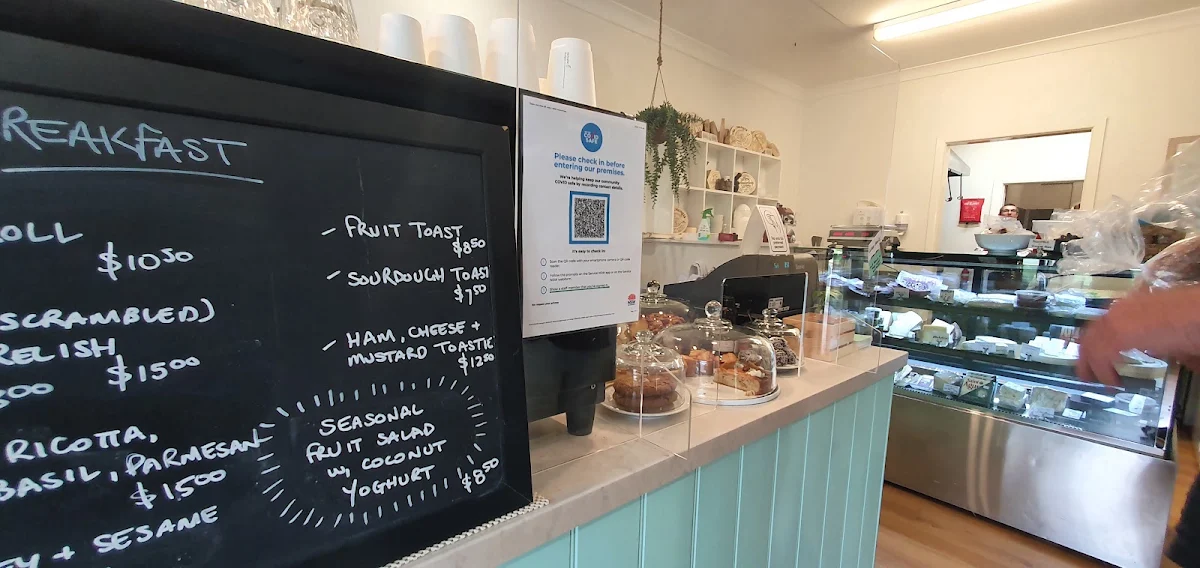 REAKFAST
OLL
$10.50
SCRAMBLED)
RELISH
$15.00
RICOTTA,
BASIL, PARMESAN
$15.00
+ SESAME
- FRUIT TOAST
$8.50
- SOURDOUGH TOAST
$7.50
- HAM, CHEESE +
MUSTARD TOASTIE
$12.50
SEASONAL
FRUIT SALAD
W, COCONUT
YOGHURT
$8.50
Please check in before
entering our premises.
We're helping keep our community
COVID safe by recording contact details.
It's easy to check in: